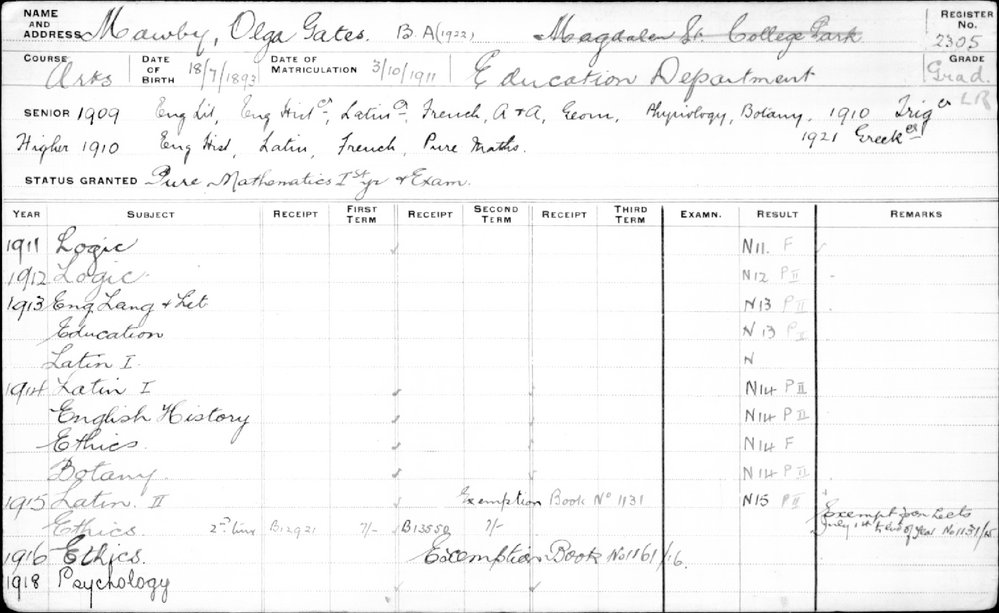 NAME AND ADDRESS Mawby, Olga Gates. B.A (1922) Magdalen St. College Park REGISTER No. 2305
COURSE Arts DATE OF BIRTH 18/7/1893 DATE OF MATRICULATION 3/10/1911 Education Department GRADE Grad.
LR
SENIOR 1909 Eng Lit, Eng Hist cr, Latin cr, French, A & A, Geom, Physiology, Botany. 1910 Trig cr
Higher 1910 Eng Hist, Latin, French, Pure Maths. 1921 Greek cr
STATUS GRANTED Pure Mathematics Ist yr & Exam.
YEAR SUBJECT RECEIPT FIRST TERM RECEIPT SECOND TERM RECEIPT THIRD TERM EXAMN. RESULT REMARKS
1911 Logic N11. F
1912 Logic N12 P II
1913 Eng Lang & Lit N13 P II
Education N13 P II
Latin I N
1914 Latin I N14 P II
English History N14 P II
Ethics. N14 F
Botany. N14 P II
1915 Latin. II Exemption Book No 1131 N15 P II
Ethics. 2nd time B12921 7/- B13550 7/- Exempt from Lects July 1st to end of year No 1131/15
1916 Ethics. Exemption Book No 1161/16.
1918 Psychology